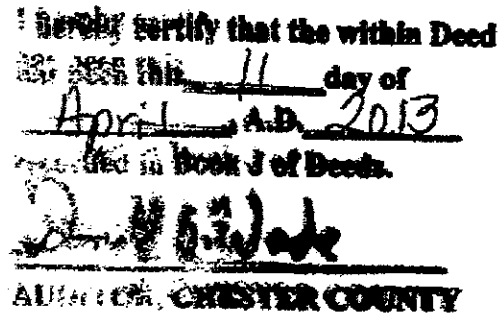 I hereby certify that the within Deed
has been this 11 day of
April, A.D. 2013
recorded in Book J of Deeds.
AUDITOR, CHESTER COUNTY